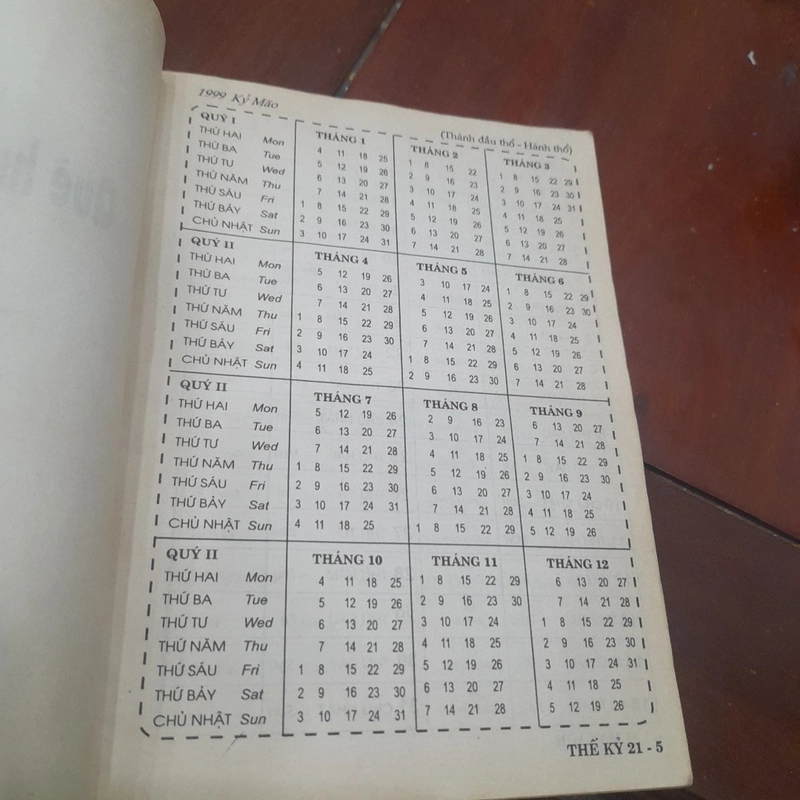 1999 Kỷ Mão
(Thành đầu thổ - Hành thổ)
QUÝ I THÁNG 1 THÁNG 2 THÁNG 3
THỨ HAI Mon 4 11 18 25 1 8 15 22 1 8 15 22 29
THỨ BA Tue 5 12 19 26 2 9 16 23 2 9 16 23 30
THỨ TƯ Wed 6 13 20 27 3 10 17 24 3 10 17 24 31
THỨ NĂM Thu 7 14 21 28 4 11 18 25 4 11 18 25
THỨ SÁU Fri 1 8 15 22 29 5 12 19 26 5 12 19 26
THỨ BẢY Sat 2 9 16 23 30 6 13 20 27 6 13 20 27
CHỦ NHẬT Sun 3 10 17 24 31 7 14 21 28 7 14 21 28
QUÝ II THÁNG 4 THÁNG 5 THÁNG 6
THỨ HAI Mon 5 12 19 26 3 10 17 24 1 8 15 22 29
THỨ BA Tue 6 13 20 27 4 11 18 25 2 9 16 23 30
THỨ TƯ Wed 7 14 21 28 5 12 19 26 3 10 17 24
THỨ NĂM Thu 1 8 15 22 29 6 13 20 27 4 11 18 25
THỨ SÁU Fri 2 9 16 23 30 7 14 21 28 5 12 19 26
THỨ BẢY Sat 3 10 17 24 1 8 15 22 29 6 13 20 27
CHỦ NHẬT Sun 4 11 18 25 2 9 16 23 30 7 14 21 28
QUÝ II THÁNG 7 THÁNG 8 THÁNG 9
THỨ HAI Mon 5 12 19 26 2 9 16 23 6 13 20 27
THỨ BA Tue 6 13 20 27 3 10 17 24 7 14 21 28
THỨ TƯ Wed 7 14 21 28 4 11 18 25 1 8 15 22 29
THỨ NĂM Thu 1 8 15 22 29 5 12 19 26 2 9 16 23 30
THỨ SÁU Fri 2 9 16 23 30 6 13 20 27 3 10 17 24
THỨ BẢY Sat 3 10 17 24 31 7 14 21 28 4 11 18 25
CHỦ NHẬT Sun 4 11 18 25 1 8 15 22 29 5 12 19 26
QUÝ II THÁNG 10 THÁNG 11 THÁNG 12
THỨ HAI Mon 4 11 18 25 1 8 15 22 29 6 13 20 27
THỨ BA Tue 5 12 19 26 2 9 16 23 30 7 14 21 28
THỨ TƯ Wed 6 13 20 27 3 10 17 24 1 8 15 22 29
THỨ NĂM Thu 7 14 21 28 4 11 18 25 2 9 16 23 30
THỨ SÁU Fri 1 8 15 22 29 5 12 19 26 3 10 17 24 31
THỨ BẢY Sat 2 9 16 23 30 6 13 20 27 4 11 18 25
CHỦ NHẬT Sun 3 10 17 24 31 7 14 21 28 5 12 19 26
THẾ KỶ 21 - 5